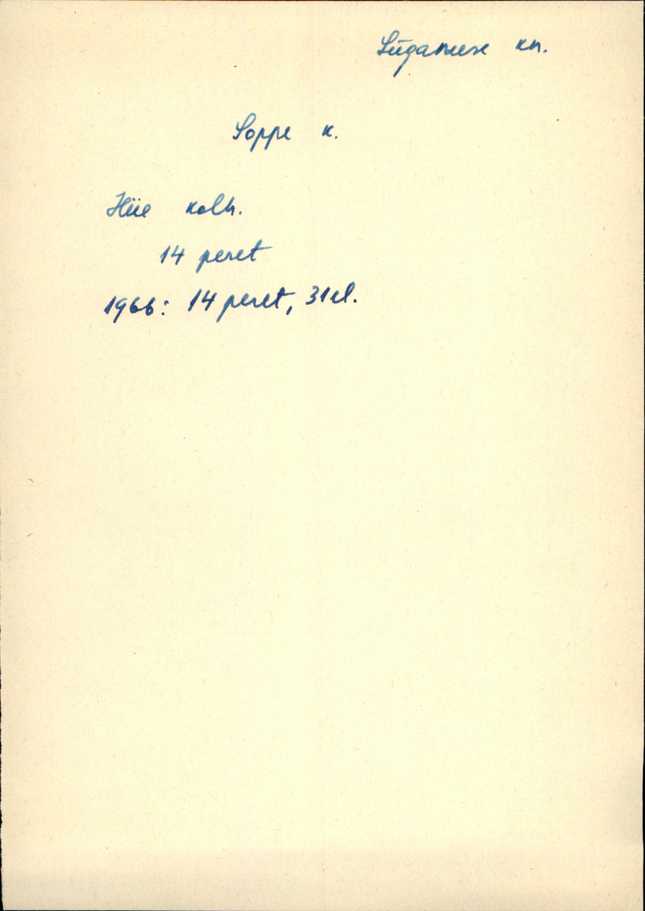 Lüganuse kn.
Soppe k.
Hiie kolh.
14 peret
1966: 14 peret, 31 el.